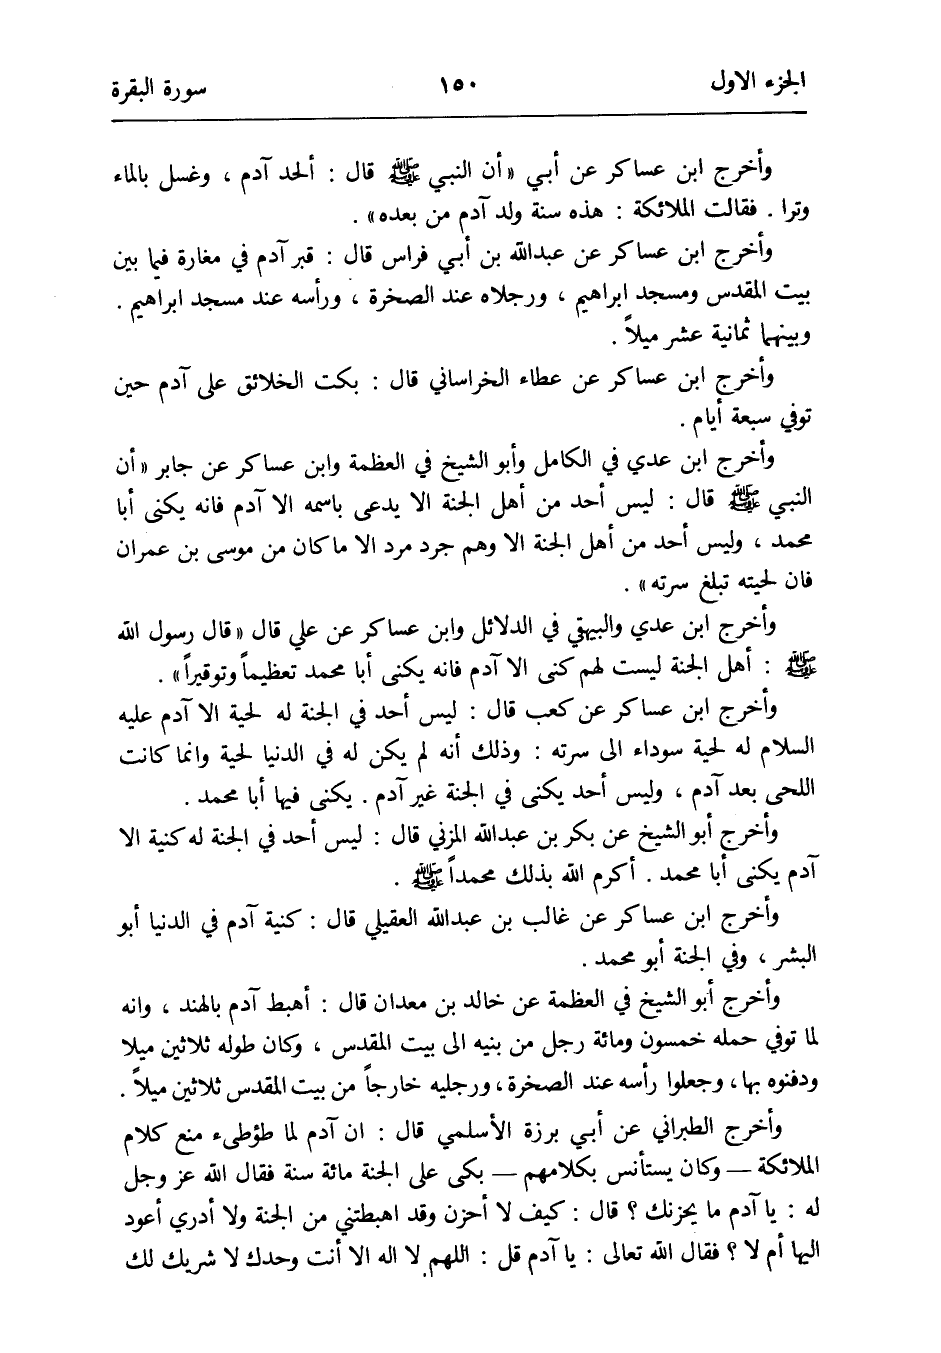 الجزء الاول ١٥٠ سورة البقرة
وأخرج ابن عساكر عن أبي «أن النبي ﷺ قال : ألحد آدم ، وغسل بالماء
وترا . فقالت الملائكة : هذه سنة ولد آدم من بعده» .
وأخرج ابن عساكر عن عبدالله بن أبي فراس قال : قبر آدم في مغارة فيما بين
بيت المقدس ومسجد ابراهيم ، ورجلاه عند الصخرة ، ورأسه عند مسجد ابراهيم .
وبينهما ثمانية عشر ميلاً .
وأخرج ابن عساكر عن عطاء الخراساني قال : بكت الخلائق على آدم حين
توفي سبعة أيام .
وأخرج ابن عدي في الكامل وأبو الشيخ في العظمة وابن عساكر عن جابر «أن
النبي ﷺ قال : ليس أحد من أهل الجنة الا يدعى باسمه الا آدم فانه يكنى أبا
محمد ، وليس أحد من أهل الجنة الا وهم جرد مرد الا ما كان من موسى بن عمران
فان لحيته تبلغ سرته» .
وأخرج ابن عدي والبيهقي في الدلائل وابن عساكر عن علي قال «قال رسول الله
ﷺ : أهل الجنة ليست لهم كنى الا آدم فانه يكنى أبا محمد تعظيماً وتوقيراً» .
وأخرج ابن عساكر عن كعب قال : ليس أحد في الجنة له لحية الا آدم عليه
السلام له لحية سوداء الى سرته : وذلك أنه لم يكن له في الدنيا لحية وانما كانت
اللحى بعد آدم ، وليس أحد يكنى في الجنة غير آدم . يكنى فيها أبا محمد .
وأخرج أبو الشيخ عن بكر بن عبدالله المزني قال : ليس أحد في الجنة له كنية الا
آدم يكنى أبا محمد . أكرم الله بذلك محمداً ﷺ .
وأخرج ابن عساكر عن غالب بن عبدالله العقيلي قال : كنية آدم في الدنيا أبو
البشر ، وفي الجنة أبو محمد .
وأخرج أبو الشيخ في العظمة عن خالد بن معدان قال : أهبط آدم بالهند ، وانه
لما توفي حمله خمسون ومائة رجل من بنيه الى بيت المقدس ، وكان طوله ثلاثين ميلا
ودفنوه بها ، وجعلوا رأسه عند الصخرة ، ورجليه خارجاً من بيت المقدس ثلاثين ميلاً .
وأخرج الطبراني عن أبي برزة الأسلمي قال : ان آدم لما طؤطىء منع كلام
الملائكة — وكان يستأنس بكلامهم — بكى على الجنة مائة سنة فقال الله عز وجل
له : يا آدم ما يحزنك ؟ قال : كيف لا أحزن وقد اهبطتني من الجنة ولا أدري أعود
اليها أم لا ؟ فقال الله تعالى : يا آدم قل : اللهم لا اله الا أنت وحدك لا شريك لك